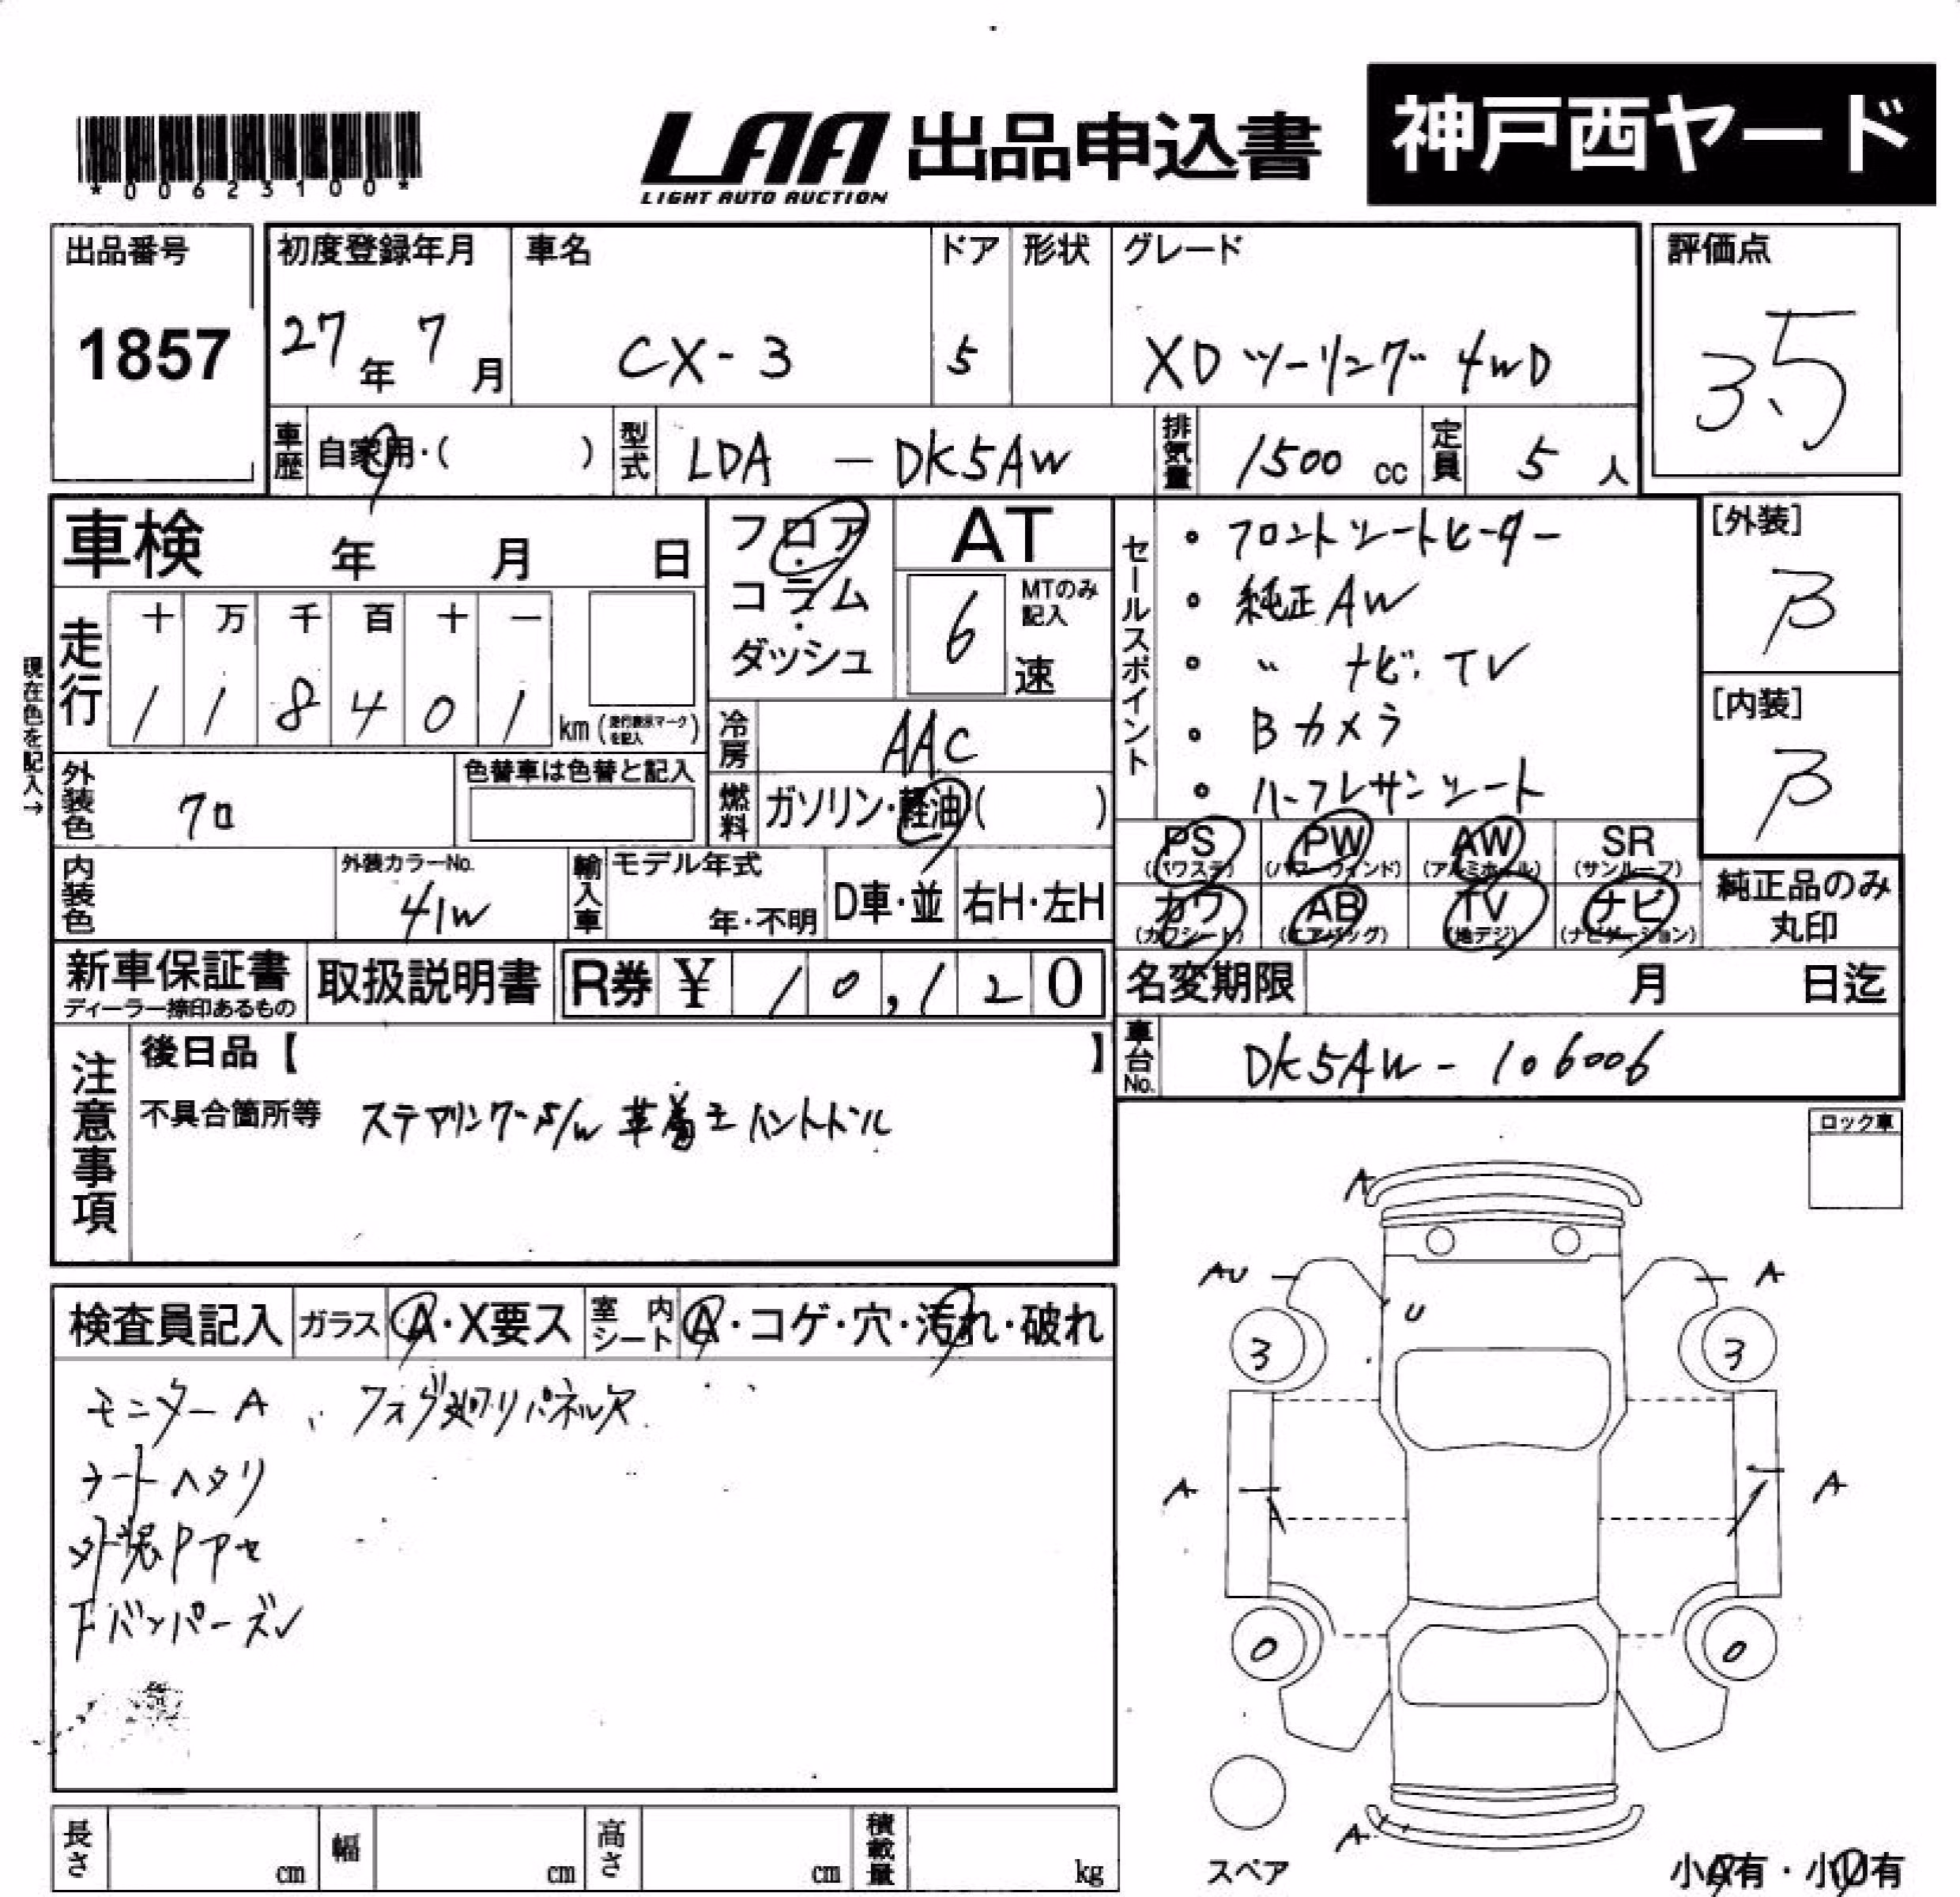 *00623100*
LAA 出品申込書
LIGHT AUTO AUCTION
神戸西ヤード
出品番号
1857
初度登録年月
27年 7月
車名
CX-3
ドア
5
形状
グレード
XDツーリング 4WD
評価点
3.5
車歴 自家用・( )
型式 LDA - DK5AW
排気量 1500 cc
定員 5 人
車検 年 月 日
フロア・コラム・ダッシュ
AT
6 速
MTのみ記入
セールスポイント
・フロントシートヒーター
・純正AW
・〃 ナビ、TV
・Bカメラ
・ハーフレザーシート
[外装]
B
[内装]
B
現在色を記入→
走行
十 万 千 百 十 一
1 1 8 4 0 1 km (走行表示マークを記入)
冷房 AAC
外装色 クロ
色替車は色替と記入
燃料 ガソリン・軽油( )
PS (パワステ)
PW (パワーウィンド)
AW (アルミホイル)
SR (サンルーフ)
カワ (カワシート)
AB (エアバッグ)
TV (地デジ)
ナビ (ナビゲーション)
純正品のみ丸印
内装色
外装カラーNo.
41W
輸入車
モデル年式
年・不明
D車・並
右H・左H
新車保証書
ディーラー捺印あるもの
取扱説明書
R券 ¥ 10,120
名変期限 月 日迄
車台No. DK5AW - 106006
注意事項
後日品【 】
不具合箇所等 ステアリングS/W 革巻キハンドル
ロック車
検査員記入
ガラス A・X要ス
室内シート A・コゲ・穴・汚れ・破れ
モニターA、フォグ廻りパネル欠
シートヘタリ
外装Pアセ
Fバンパーズレ
A
AU
A
U
3
3
A
A
0
0
A
スペア
小A有・小U有
長さ cm
幅 cm
高さ cm
積載量 kg